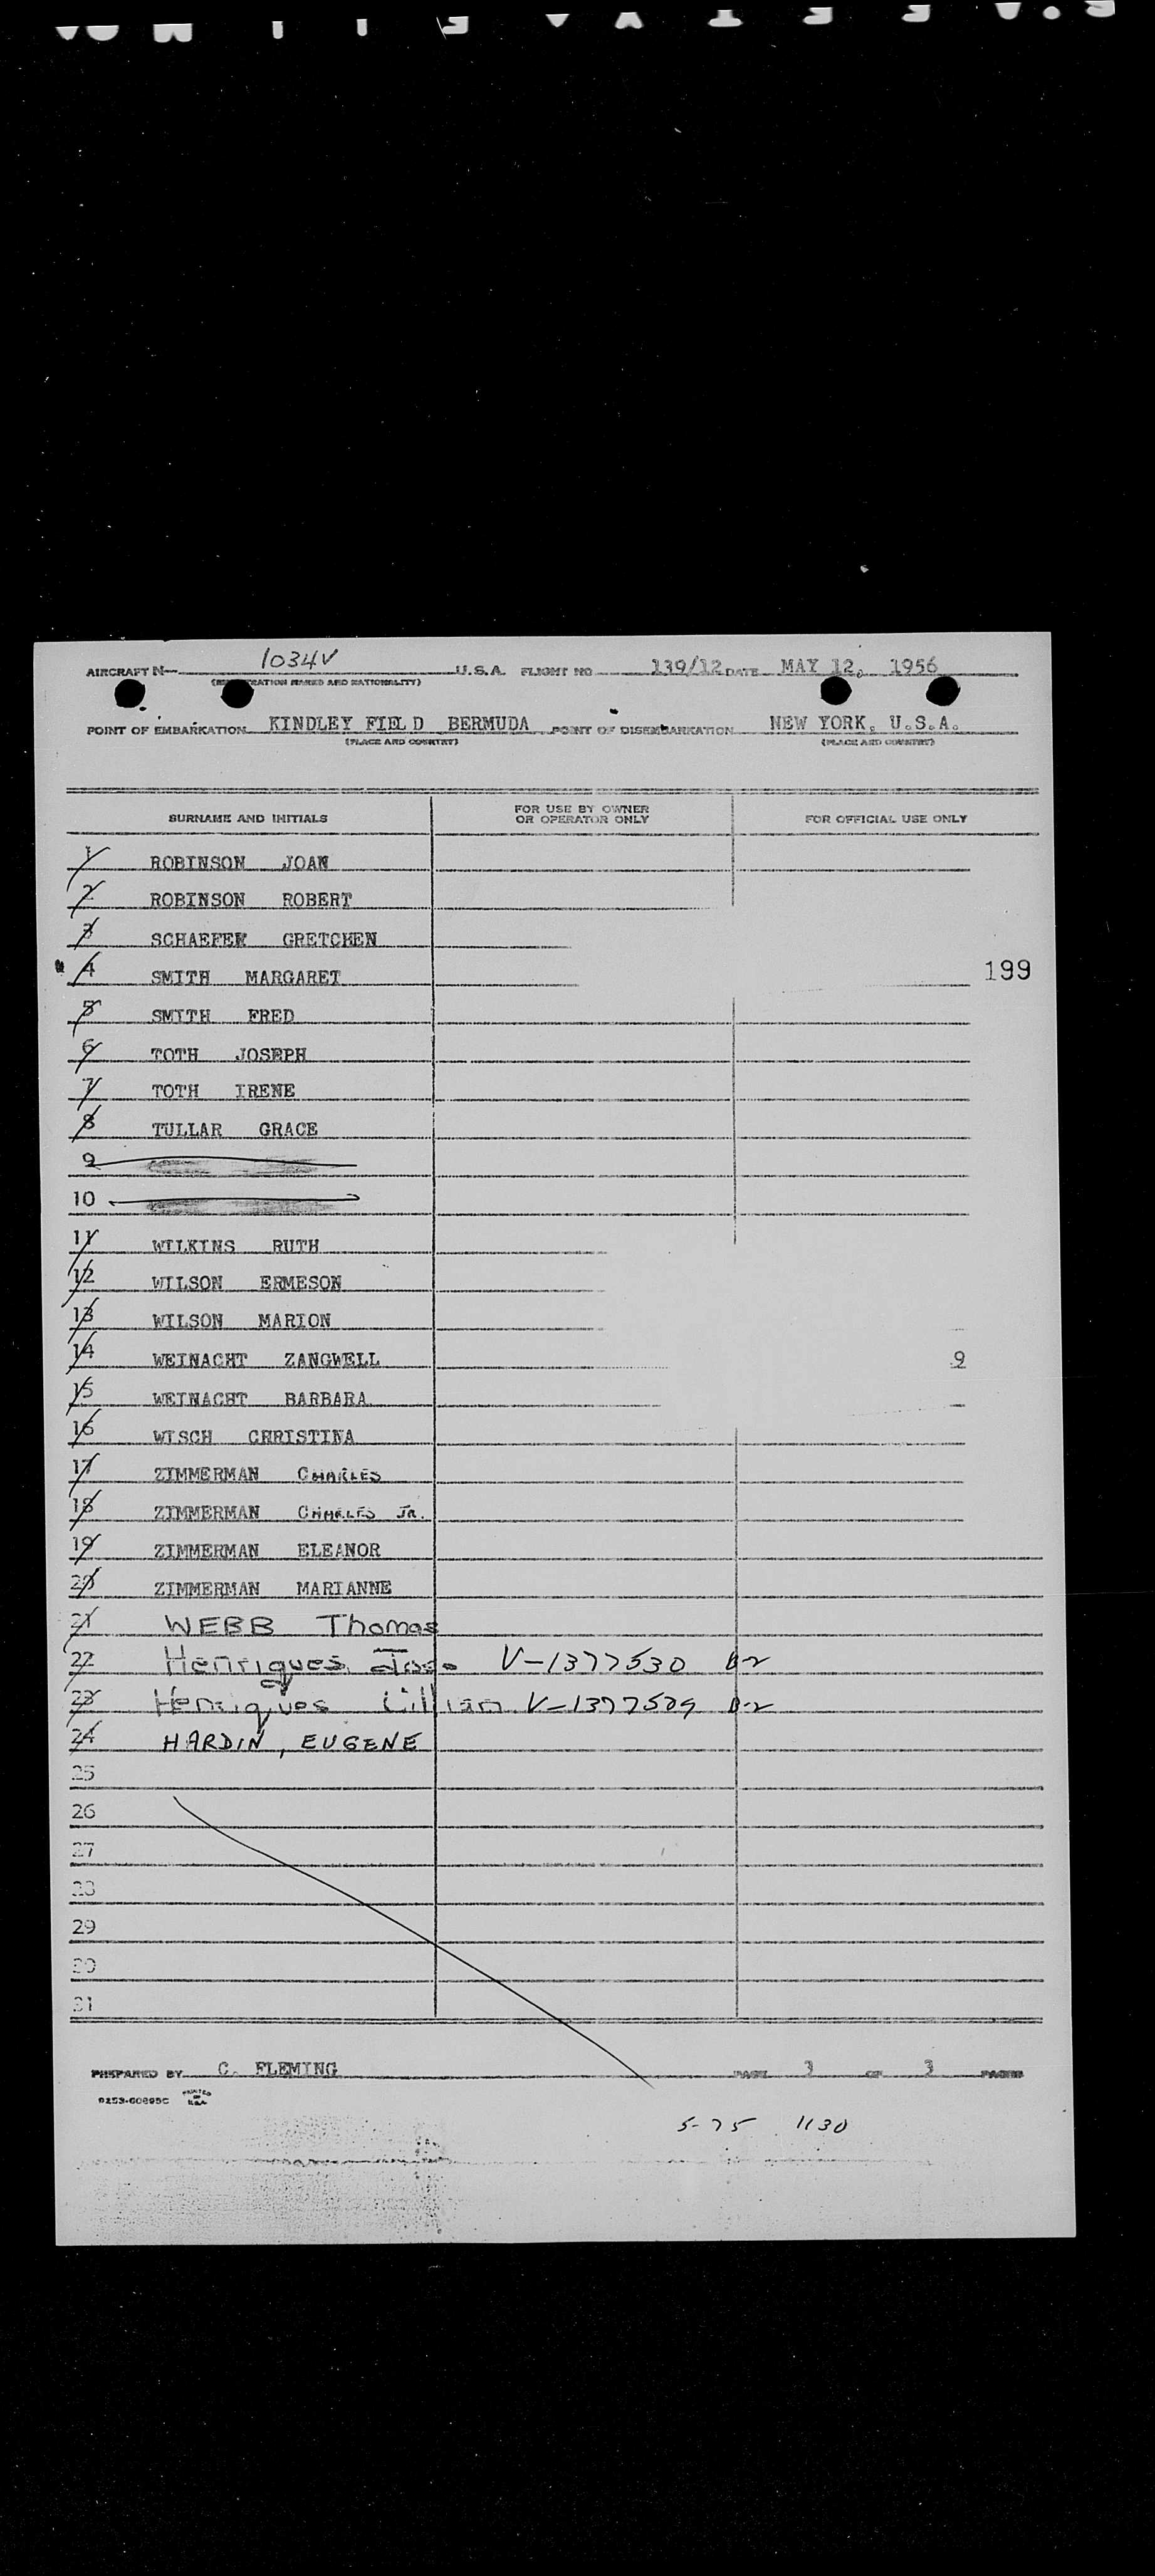 AIRCRAFT N- 1034V U.S.A. FLIGHT NO 139/12 DATE MAY 12, 1956
(REGISTRATION MARKS AND NATIONALITY)
POINT OF EMBARKATION KINDLEY FIELD BERMUDA POINT OF DISEMBARKATION NEW YORK, U.S.A.
(PLACE AND COUNTRY) (PLACE AND COUNTRY)
SURNAME AND INITIALS FOR USE BY OWNER OR OPERATOR ONLY FOR OFFICIAL USE ONLY
1 ROBINSON JOAN
2 ROBINSON ROBERT
3 SCHAEFER GRETCHEN
4 SMITH MARGARET 199
5 SMITH FRED
6 TOTH JOSEPH
7 TOTH IRENE
8 TULLAR GRACE
9
10
11 WILKINS RUTH
12 WILSON ERMESON
13 WILSON MARION
14 WEINACHT ZANGWELL 9
15 WEINACHT BARBARA
16 WISCH CHRISTINA
17 ZIMMERMAN CHARLES
18 ZIMMERMAN CHARLES JR.
19 ZIMMERMAN ELEANOR
20 ZIMMERMAN MARIANNE
21 WEBB Thomas
22 Henriques V-1377530 B-2
23 Henriques Lillian V-1377529 B-2
24 HARDIN, EUGENE
25
26
27
28
29
30
31
PREPARED BY C. FLEMING PAGE 3 OF 3 PAGES
PRINTED IN U.S.A.
5-75 1130